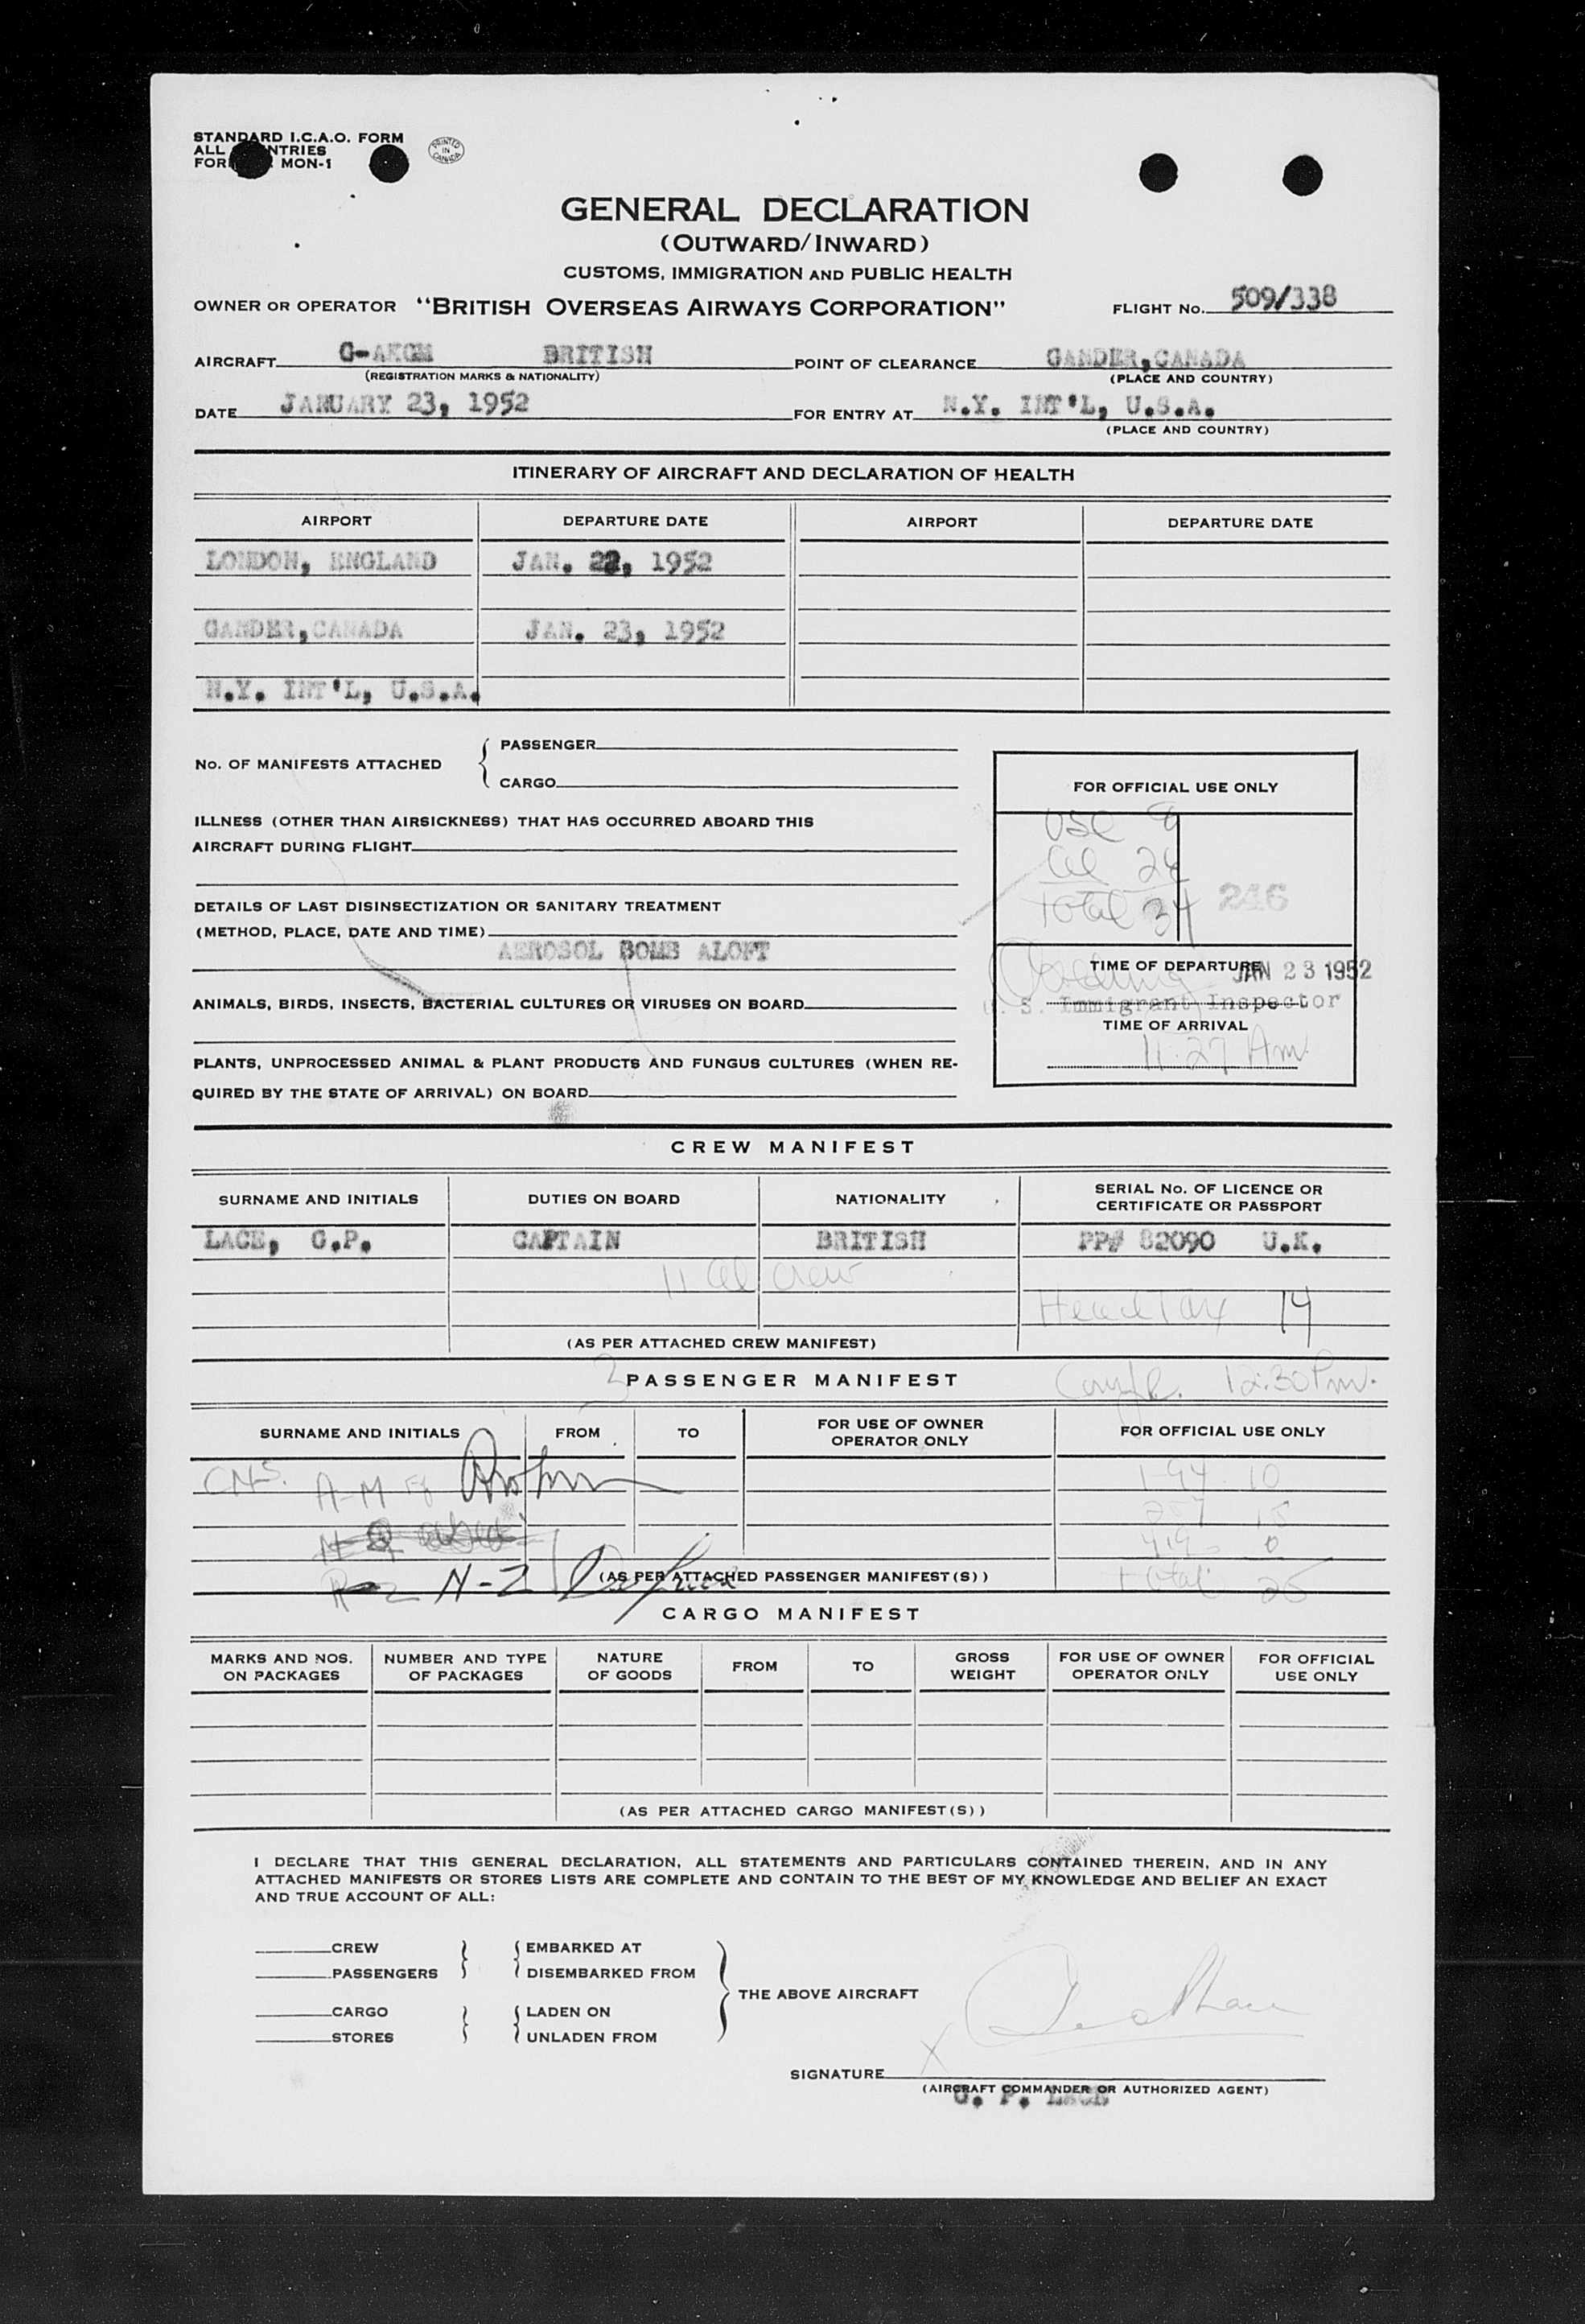 STANDARD I.C.A.O. FORM
ALL NTRIES
FOR MON-1
PRINTED IN CANADA
GENERAL DECLARATION
(OUTWARD/INWARD)
CUSTOMS, IMMIGRATION AND PUBLIC HEALTH
OWNER OR OPERATOR "BRITISH OVERSEAS AIRWAYS CORPORATION" FLIGHT No. 509/338
AIRCRAFT BRITISH POINT OF CLEARANCE GANDER, CANADA
(REGISTRATION MARKS & NATIONALITY) (PLACE AND COUNTRY)
DATE JANUARY 23, 1952 FOR ENTRY AT N.Y. INT'L, U.S.A.
(PLACE AND COUNTRY)
ITINERARY OF AIRCRAFT AND DECLARATION OF HEALTH
AIRPORT DEPARTURE DATE AIRPORT DEPARTURE DATE
LONDON, ENGLAND JAN. 22, 1952
GANDER, CANADA JAN. 23, 1952
N.Y. INT'L, U.S.A.
No. OF MANIFESTS ATTACHED { PASSENGER
CARGO
FOR OFFICIAL USE ONLY
USC 8
Al 26
Total 34 246
ILLNESS (OTHER THAN AIRSICKNESS) THAT HAS OCCURRED ABOARD THIS
AIRCRAFT DURING FLIGHT
DETAILS OF LAST DISINSECTIZATION OR SANITARY TREATMENT
(METHOD, PLACE, DATE AND TIME)
AEROSOL BOMB ALOFT
TIME OF DEPARTURE JAN 23 1952
U. S. Immigrant Inspector
TIME OF ARRIVAL
11:27 Am
ANIMALS, BIRDS, INSECTS, BACTERIAL CULTURES OR VIRUSES ON BOARD
PLANTS, UNPROCESSED ANIMAL & PLANT PRODUCTS AND FUNGUS CULTURES (WHEN RE-
QUIRED BY THE STATE OF ARRIVAL) ON BOARD
CREW MANIFEST
SURNAME AND INITIALS DUTIES ON BOARD NATIONALITY SERIAL No. OF LICENCE OR
CERTIFICATE OR PASSPORT
LACE, G.P. CAPTAIN BRITISH PP# 82090 U.K.
11 Al Crew
Head Tax 14
(AS PER ATTACHED CREW MANIFEST)
3 PASSENGER MANIFEST 12:30 Pm.
SURNAME AND INITIALS FROM TO FOR USE OF OWNER
OPERATOR ONLY FOR OFFICIAL USE ONLY
A-M I-94 10
257 15
0
N-Z (AS PER ATTACHED PASSENGER MANIFEST(S)) Total 25
CARGO MANIFEST
MARKS AND NOS.
ON PACKAGES NUMBER AND TYPE
OF PACKAGES NATURE
OF GOODS FROM TO GROSS
WEIGHT FOR USE OF OWNER
OPERATOR ONLY FOR OFFICIAL
USE ONLY
(AS PER ATTACHED CARGO MANIFEST(S))
I DECLARE THAT THIS GENERAL DECLARATION, ALL STATEMENTS AND PARTICULARS CONTAINED THEREIN, AND IN ANY
ATTACHED MANIFESTS OR STORES LISTS ARE COMPLETE AND CONTAIN TO THE BEST OF MY KNOWLEDGE AND BELIEF AN EXACT
AND TRUE ACCOUNT OF ALL:
CREW EMBARKED AT
PASSENGERS DISEMBARKED FROM
THE ABOVE AIRCRAFT
CARGO LADEN ON
STORES UNLADEN FROM
X
SIGNATURE
(AIRCRAFT COMMANDER OR AUTHORIZED AGENT)
G. P. LACE